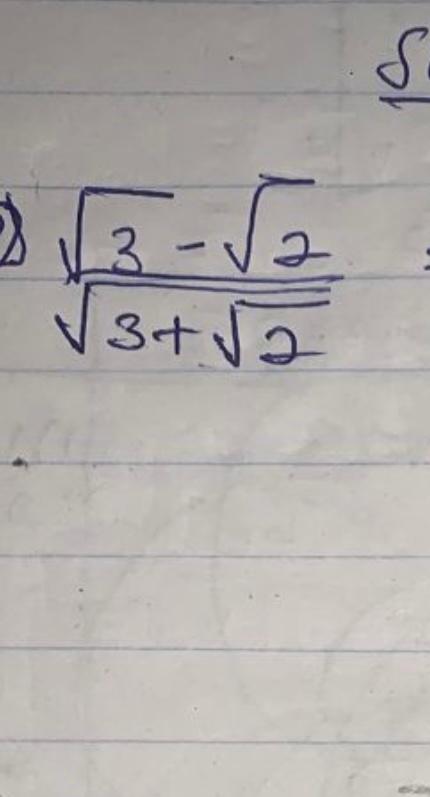 √3 - √2
√(3+√2)